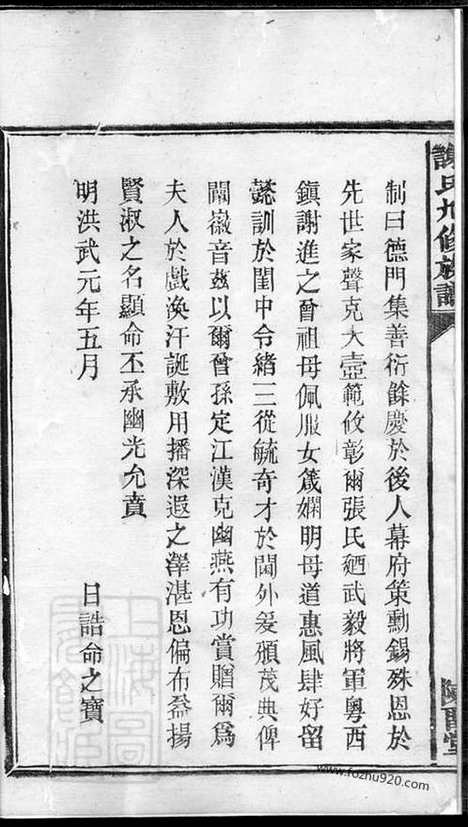 謝氏九修族譜
制曰德門集善衍餘慶於後人幕府策勳錫殊恩於
先世家聲克大壼範攸彰爾張氏廼武毅將軍粵西
鎮謝進之曾祖母佩服女箴嫻明母道惠風肆好留
懿訓於閨中令緒三從毓奇才於閫外爰頒茂典俾
闡徽音茲以爾曾孫定江漢克幽燕有功賞贈爾爲
夫人於戲渙汗誕敷用播深遐之澤湛恩偏布益揚
賢淑之名顯命丕承幽光允賁
明洪武元年五月　日誥命之寶
www.fozhu920.com